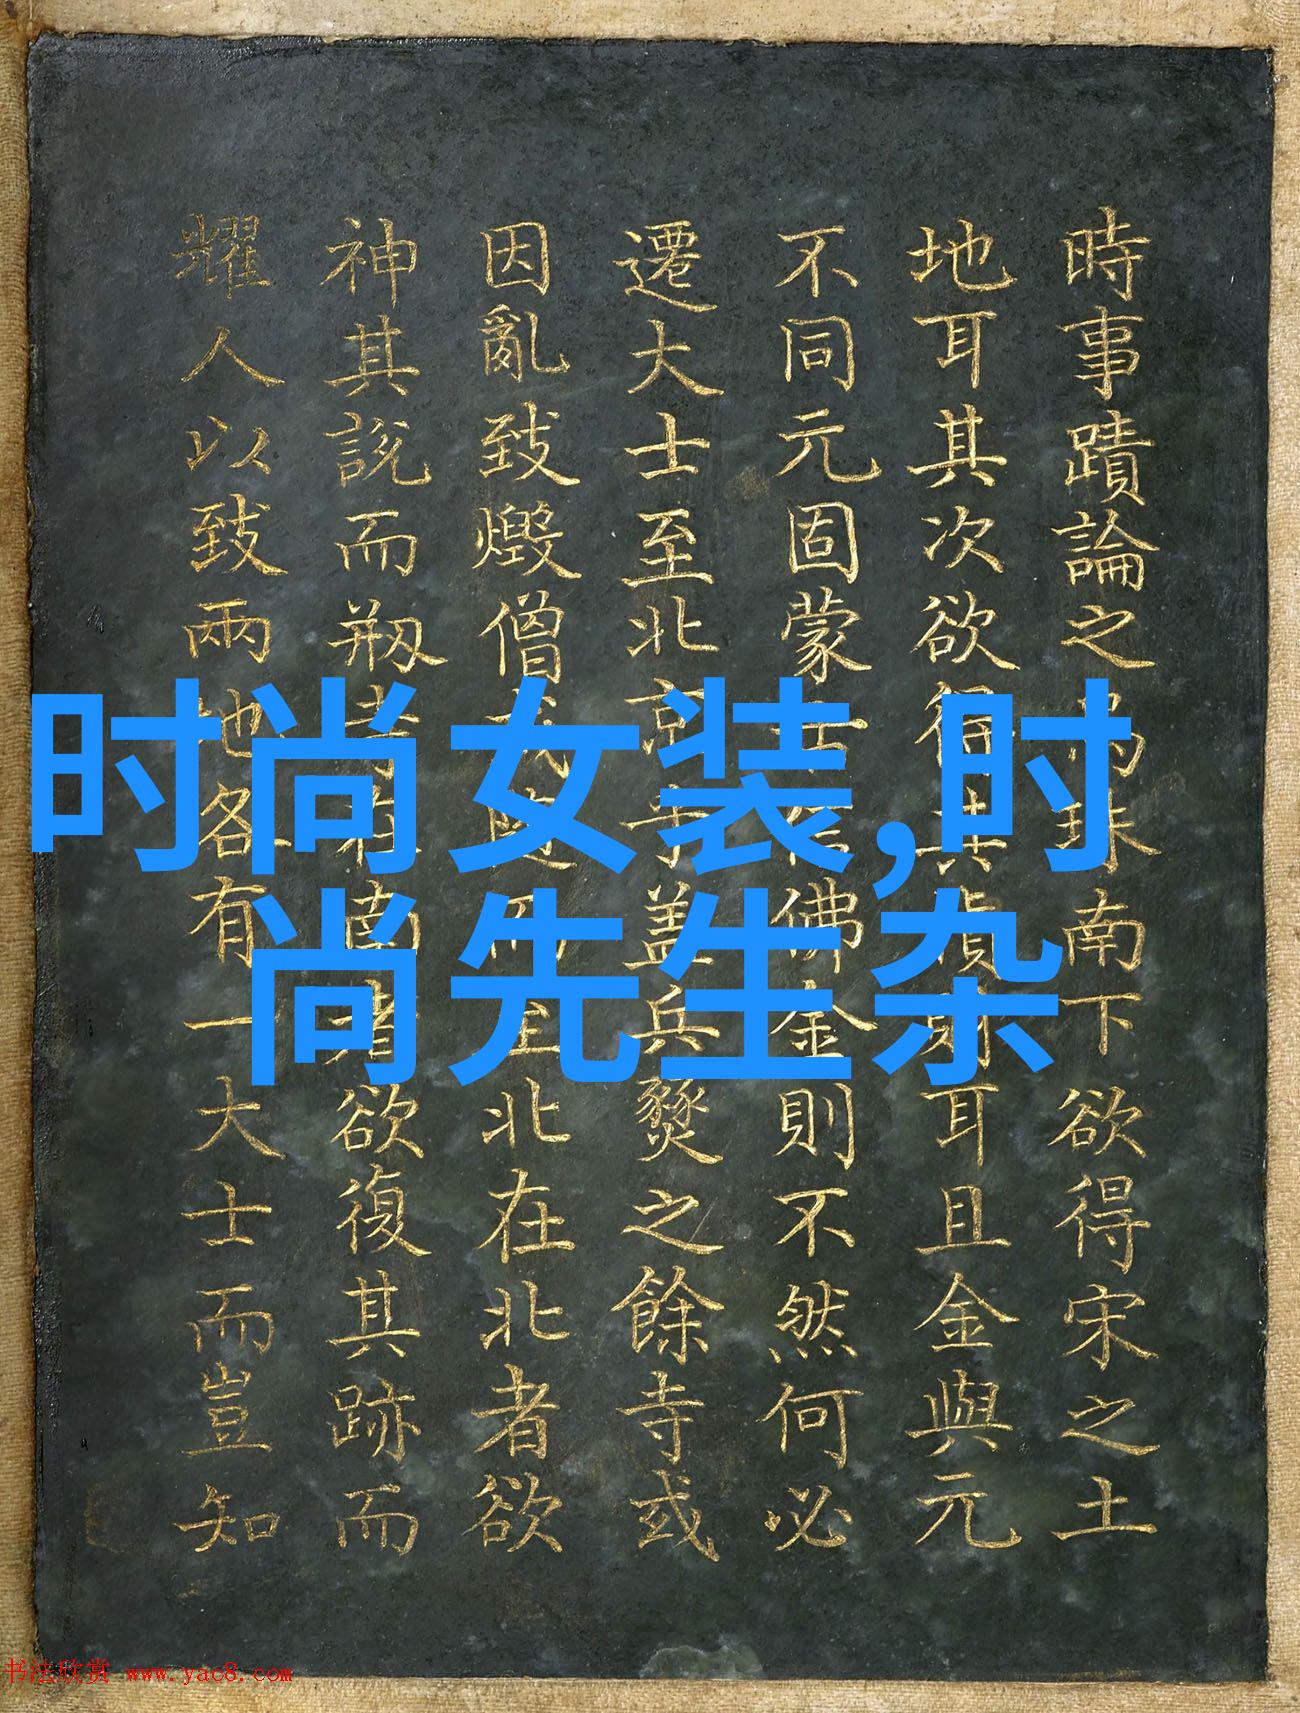 時事蹟論之烏珠南下欲得宋之土
地耳其次欲得其貨財耳且金與元
不同元固蒙古信佛金則不然何必
遷大士至北京乎蓋兵燹之餘寺或
因亂致燬僧北在北者欲
神其說而剏南者欲復其跡而
耀人以致兩地各有一大士而豈知
时尚女装,时
尚先生杂
书法欣赏 www.yac8.com